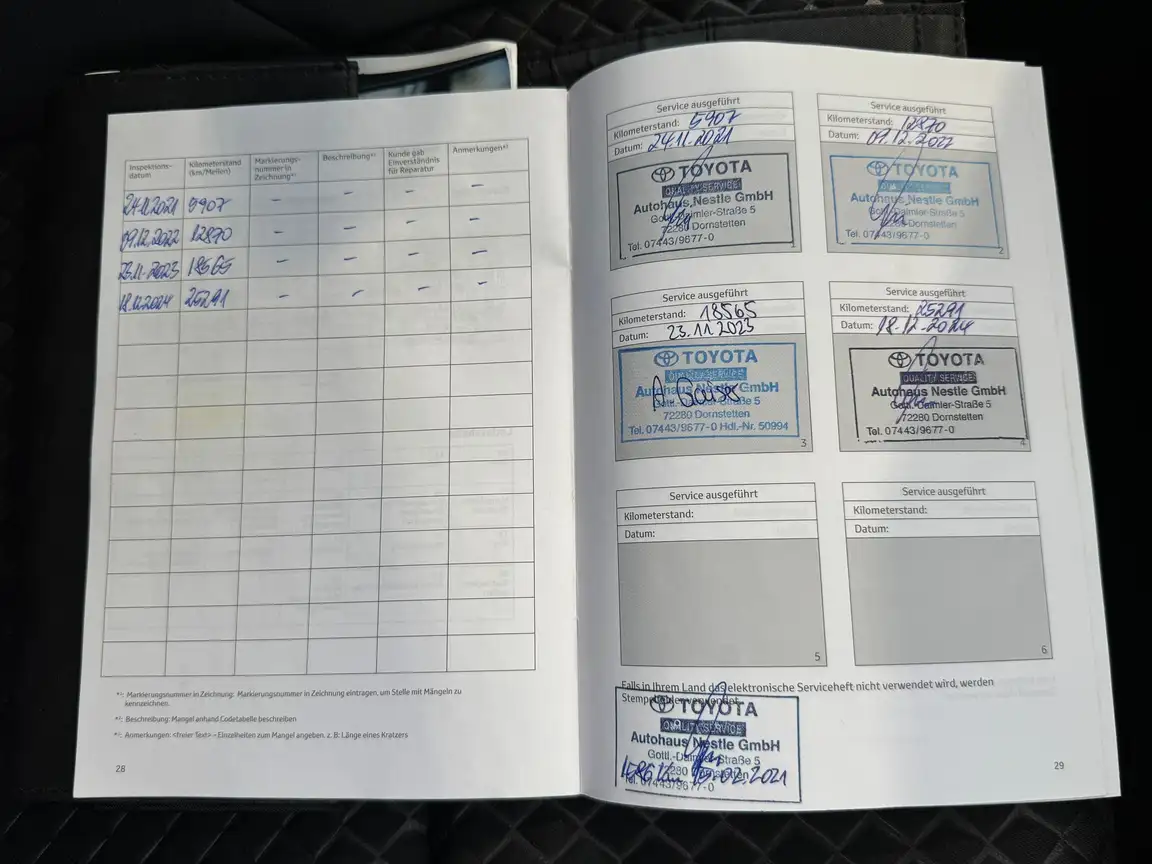 Inspektions-
datum
Kilometerstand
(km/Meilen)
Markierungs-
nummer in
Zeichnung*¹⁾
Beschreibung*²⁾
Kunde gab
Einverständnis
für Reparatur
Anmerkungen*³⁾
24.11.2021 5907 - - - -
09.12.2022 12870 - - - -
23.11.2023 18565 - - - -
18.12.2024 25291 - - - -
*¹⁾: Markierungsnummer in Zeichnung: Markierungsnummer in Zeichnung eintragen, um Stelle mit Mängeln zu
kennzeichnen.
*²⁾: Beschreibung: Mangel anhand Codetabelle beschreiben
*³⁾: Anmerkungen: <freier Text> – Einzelheiten zum Mangel angeben. z. B: Länge eines Kratzers
28
Service ausgeführt
Kilometerstand: 5907
Datum: 24.11.2021
TOYOTA
QUALITY SERVICE
Autohaus Nestle GmbH
Gottl.-Daimler-Straße 5
72280 Dornstetten
Tel. 07443/9677-0
1
Service ausgeführt
Kilometerstand: 12870
Datum: 09.12.2022
TOYOTA
QUALITY SERVICE
Autohaus Nestle GmbH
Gottl.-Daimler-Straße 5
72280 Dornstetten
Tel. 07443/9677-0
2
Service ausgeführt
Kilometerstand: 18565
Datum: 23.11.2023
TOYOTA
QUALITY SERVICE
Autohaus Nestle GmbH
Gottl.-Daimler-Straße 5
72280 Dornstetten
Tel. 07443/9677-0 Hdl.-Nr. 50994
3
Service ausgeführt
Kilometerstand: 25291
Datum: 18.12.2024
TOYOTA
QUALITY SERVICE
Autohaus Nestle GmbH
Gottl.-Daimler-Straße 5
72280 Dornstetten
Tel. 07443/9677-0
4
Service ausgeführt
Kilometerstand:
Datum:
5
Service ausgeführt
Kilometerstand:
Datum:
6
Falls in Ihrem Land das elektronische Serviceheft nicht verwendet wird, werden
Stempelfelder verwendet.
TOYOTA
QUALITY SERVICE
Autohaus Nestle GmbH
Gottl.-Daimler-Straße 5
72280 Dornstetten
15.02.2021
Tel. 07443/9677-0
29